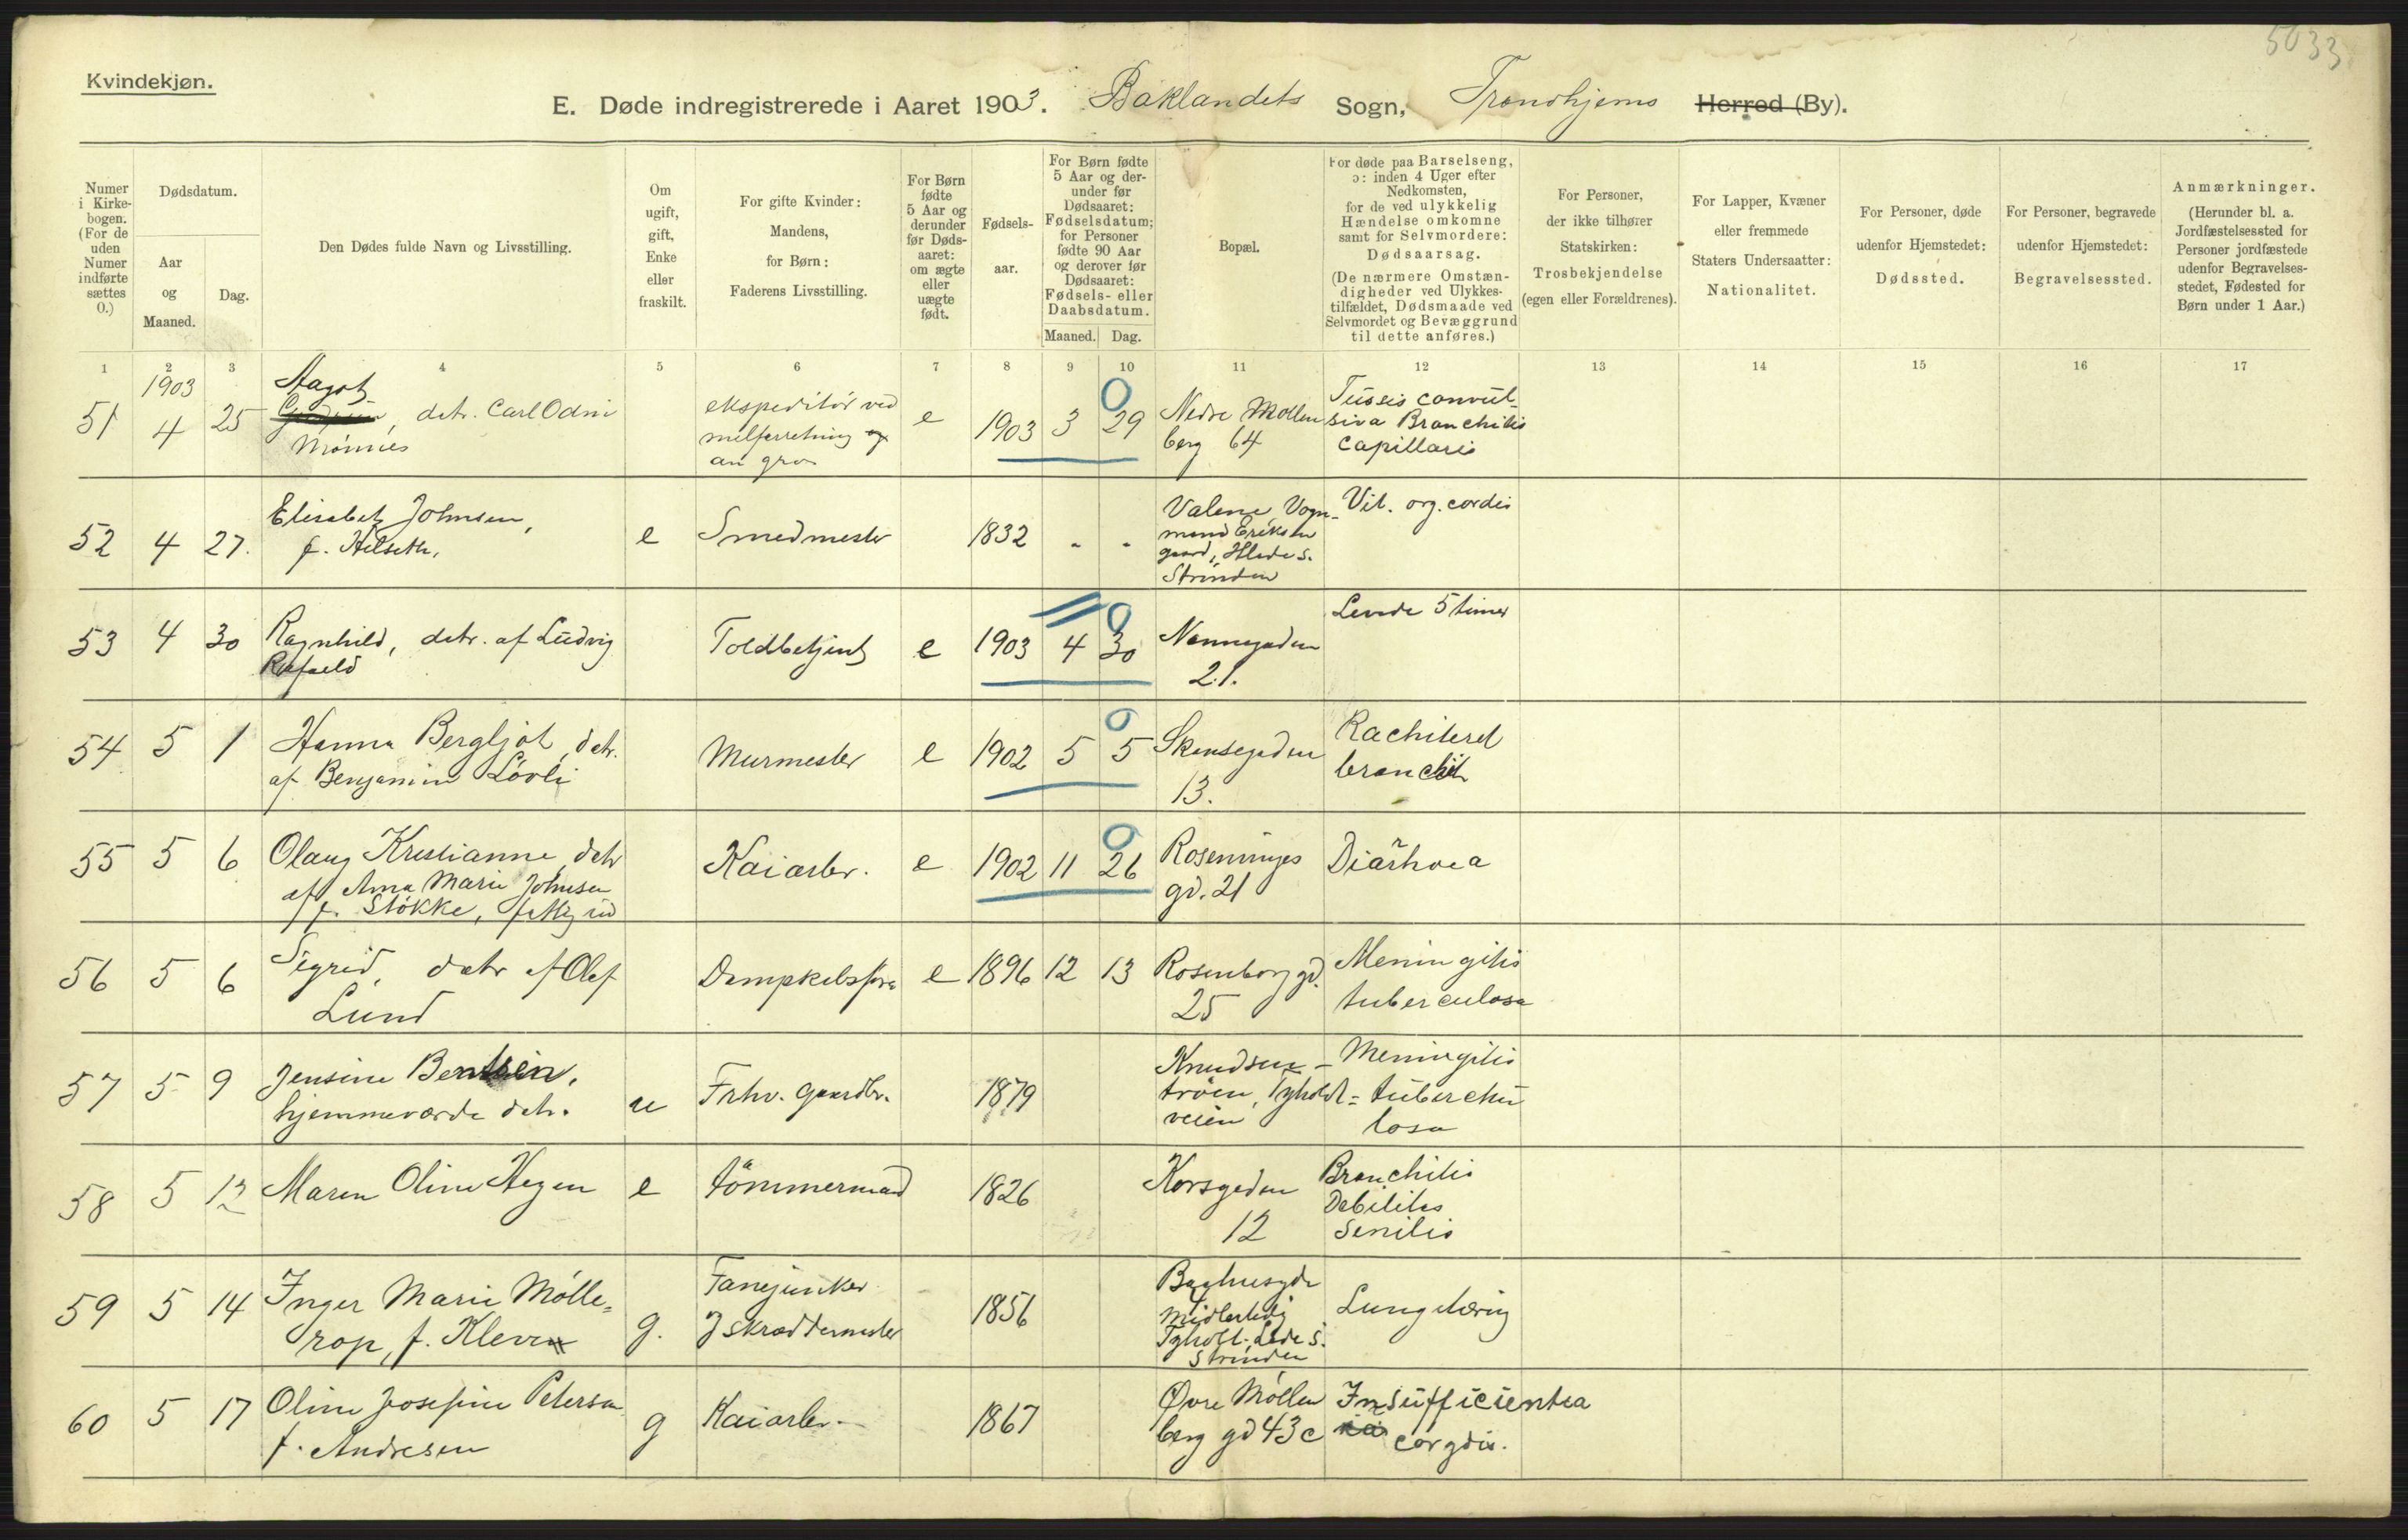 5033
Kvindekjøn.
E. Døde indregistrerede i Aaret 1903. Baklandets Sogn, Trondhjems Herred (By).
Numer i Kirke-bogen. (For de uden Numer indførte sættes 0.)
Dødsdatum.
Aar og Maaned.
Dag.
Den Dødes fulde Navn og Livsstilling.
Om ugift, gift, Enke eller fraskilt.
For gifte Kvinder: Mandens, for Børn: Faderens Livsstilling.
For Børn fødte 5 Aar og derunder før Døds-aaret: om ægte eller uægte født.
Fødsels-aar.
For Børn fødte 5 Aar og der-under før Dødsaaret: Fødselsdatum; for Personer fødte 90 Aar og derover før Dødsaaret: Fødsels- eller Daabsdatum.
Maaned. Dag.
Bopæl.
For døde paa Barselseng, ɔ: inden 4 Uger efter Nedkomsten, for de ved ulykkelig Hændelse omkomne samt for Selvmordere: Dødsaarsag. (De nærmere Omstæn-digheder ved Ulykkes-tilfældet, Dødsmaade ved Selvmordet og Bevæggrund til dette anføres.)
For Personer, der ikke tilhører Statskirken: Trosbekjendelse (egen eller Forældrenes).
For Lapper, Kvæner eller fremmede Staters Undersaatter: Nationalitet.
For Personer, døde udenfor Hjemstedet: Dødssted.
For Personer, begravede udenfor Hjemstedet: Begravelsessted.
Anmærkninger. (Herunder bl. a. Jordfæstelsessted for Personer jordfæstede udenfor Begravelses-stedet, Fødested for Børn under 1 Aar.)
1 2 3 4 5 6 7 8 9 10 11 12 13 14 15 16 17
1903
51 4 25 Aagot, datr. Carl Odin
ekspeditør ved
an gros
e 1903 3 29 Nedre Møllen
berg 64
Tussis convul-
siva Bronchitis
capillaris
52 4 27. Elisabet Johnsen,
f. Hilseth.
e Smedmester 1832 - -
gaard, Hlade S.
Strinden
Vit. org. cordis
53 4 30 Ragnhild, datr. af Ludvig
Toldbetjent e 1903 4 30 Nannegaden
21.
Levede 5 timer
54 5 1 Hanna Bergljot, datr.
af Benjamin Løvli
Murmester e 1902 5 5 Skansegaden
13.
Rachiteret
bronchit
55 5 6 Olaug Kristianne datr
af Anna Marie Johnsen
f. Stokke,
Kaiarbr. e 1902 11 26 Rosenvinges
gd. 21
Diarrhoea
56 5 6 Sigrid, datr af Olef
Lund
e 1896 12 13 Rosenborg gd.
25
Meningitis
tuberculosa
57 5 9 Jensine Bentsen,
hjemmeværde datr.
u Frhv. gaardbr. 1879
Knudsen-
trøen, Tyholt-
veien
Meningitis
tuberchu
losa
58 5 12 Maren Oline Hegen e tømmermand 1826 Korsgaden
12
Bronchitis
Debilitas
Senilis
59 5 14 Inger Marie Mølle-
rop, f. Kleven
g. Fanejunker
Skræddermester
1856
Baghusgd
midlertidig
Tyholt. Lade S.
Strinden
Lungetæring
60 5 17 Oline Josefine Petersen
f. Andresen
g Kaiarbr. 1867 Øvre Møllen
berg gd 43c
Insufficientia
cordis.